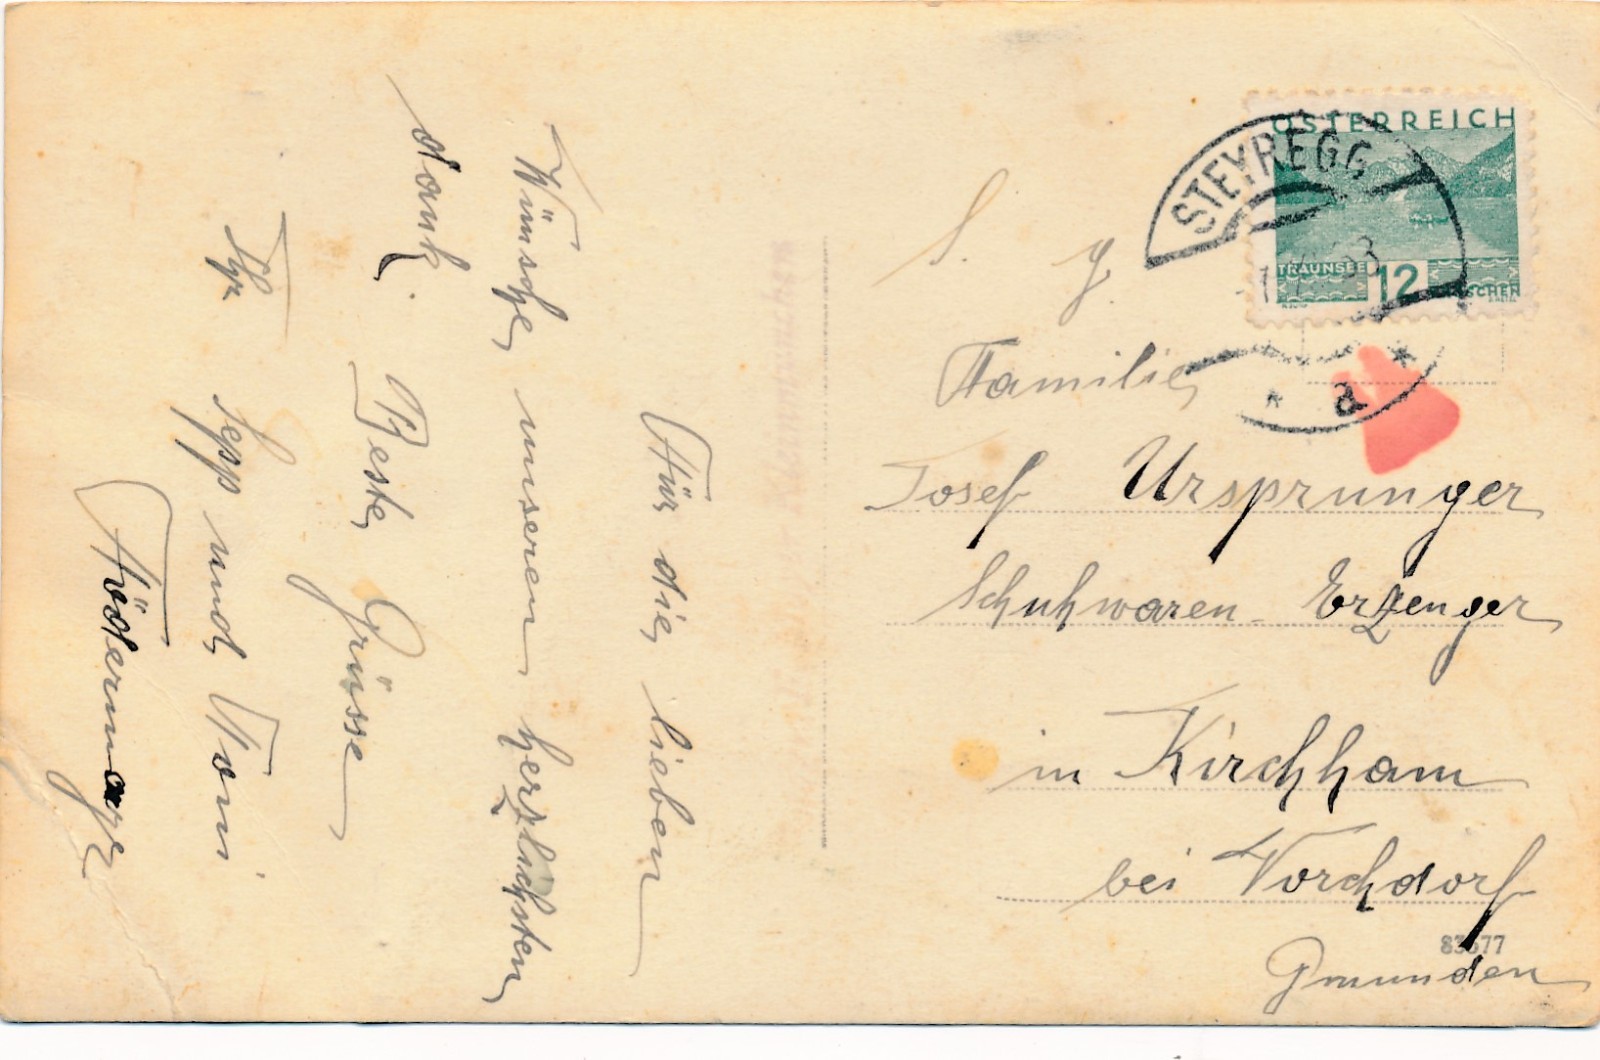 Für die lieben
Wünsche, unseren herzlichsten
dank. Beste Grüsse
Ihr Sepp und Toni
Födermayr
S. g.
Familie
Josef Ursprunger
Schuhwaren-Erzenger
in Kirchham
bei Vorchdorf
Gmunden
83677
ÖSTERREICH
TRAUNSEE 12 GROSCHEN
STEYREGG
* a *